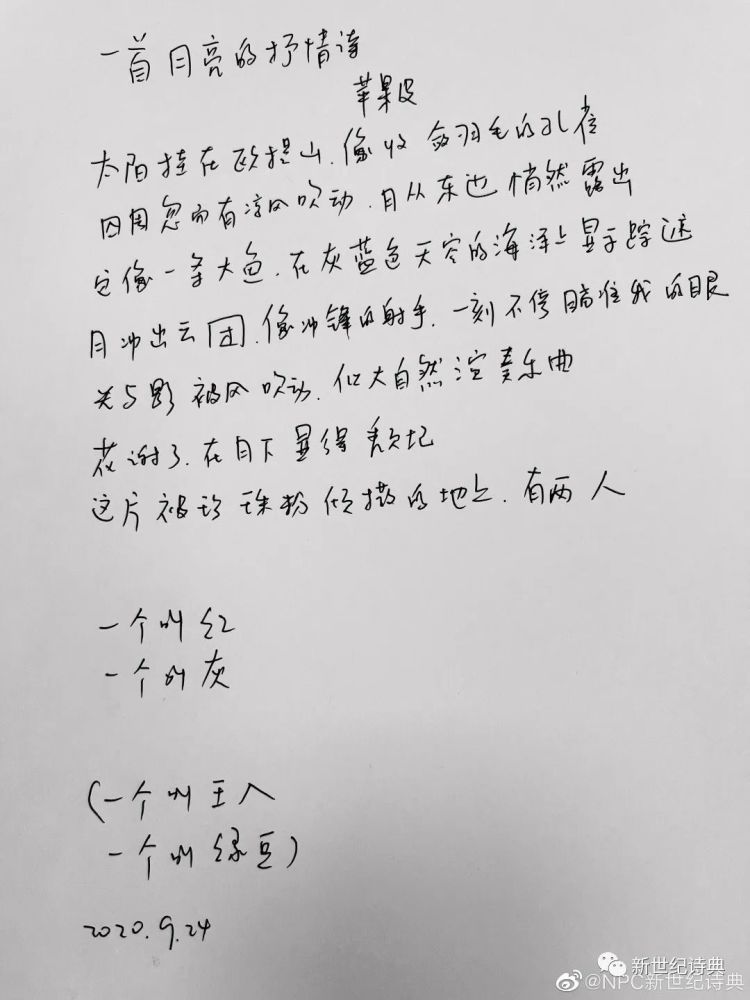 一首月亮的抒情诗
苹果皮
太阳挂在欧提山,像收敛羽毛的孔雀
四周忽而有凉风吹动,月从东边悄然露出
它像一条大鱼,在灰蓝色天空的海洋上显示踪迹
月冲出云团,像冲锋的射手,一刻不停瞄准我的眼
光与影被风吹动,似大自然渲奏乐曲
花谢了,在月下显得颓圮
这片被珍珠粉倾撒的地上,有两人
一个叫红
一个叫灰
(一个叫王八
一个叫绿豆)
2020.9.24
新世纪诗典
@NPC新世纪诗典